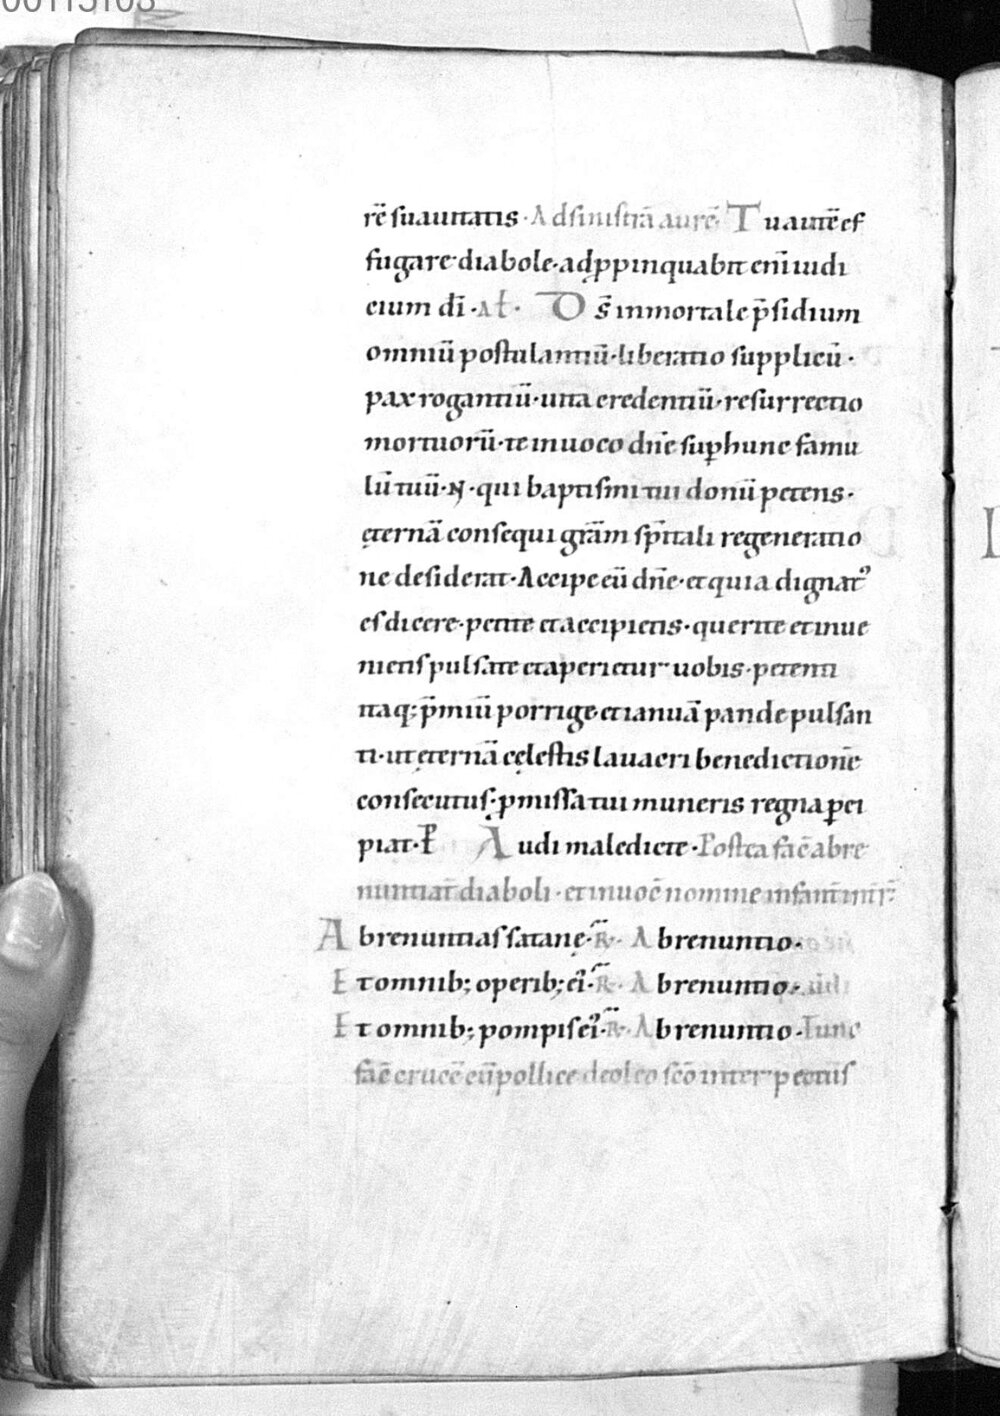 rē suauitatis · Ad sinistrā aurē Tu autē ef
fugare diabole · adp̱pinquabit eni᷄ iudi
cium dī · al̄ · Ds̄ inmortale p̄sidium
omniū postulantiū · liberatio supplicū ·
pax rogantiū · uita credentiū · resurrectio
mortuorū · te inuoco dn̄e sup̱ hunc famu
lū tuū · N · qui baptismi tui donū petens ·
ęternā consequi grām sp̄itali regeneratio
ne desiderat · Accipe eū dn̄e · et quia dignatꝰ
es dicere · petite et accipietis · querite et inue
nietis pulsate et aperietur uobis · petenti
itaq; p̄miū porrige · et ianuā pande pulsan
ti · ut ęternā cęlestis lauacri benedictionē
consecutus; p̱missa tui muneris regna p̱ci
piat · P̱ Audi maledicte · Postea fac̄ abre
nuntiat̄ diaboli · et inuoc̄ nomine infant̄
Abrenuntias satanę · R · Abrenuntio ·
Et omnib; operib; eiꝰ · R · Abrenuntio ·
Et omnib; pompis eiꝰ · R · Abrenuntio · Tunc
fac̄ crucē cū pollice de oleo sc̄o inter pectus